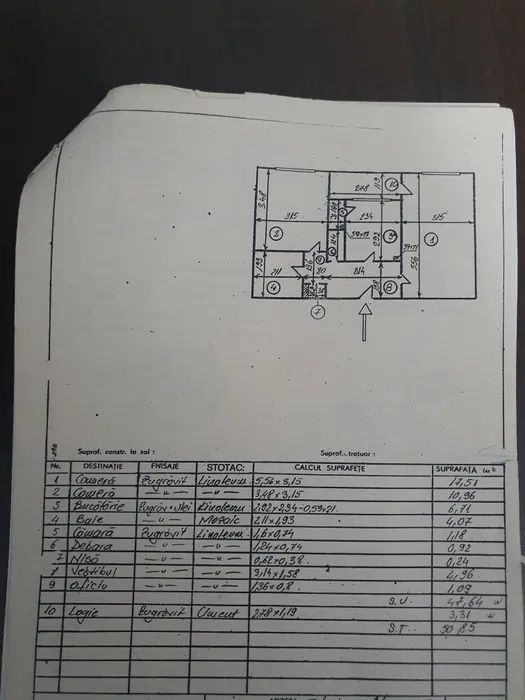 278
113
10
3.48
315
2
234
292
3
59×21
315
1
556
193
211
4
136
9
80
314
158
8
7
Supraf. constr. la sol :
Supraf. trotuar :
Nr. DESTINAȚIE FINISAJE STOTAC: CALCUL SUPRAFEȚE SUPRAFAȚA m²
1 Cameră Zugrăvit Linoleum 5,56 × 3,15 17,51
2 Cameră —u— —u— 3,48 × 3,15 10,96
3 Bucătărie Zugrăv+Ulei Linoleum 2.92 × 2.34-0,59×21 6,71
4 Baie —u— Mozaic 2.11 × 1,93 4,07
5 Cămară Zugrăvit Linoleum 1,6 × 0,74 1,18
6 Debara —u— —u— 1,24 × 0,74 0,92
7 Nișă —u— —u— 0,62 × 0,38 0,24
8 Vestibul —u— —u— 3,14 × 1,58 4,96
9 Oficiu —u— —u— 1,36 × 0,8 1,09
S.U. 47,64
10 Logie Zugrăvit Ciment 2,78 × 1,19 3,31
S.T. 50,85